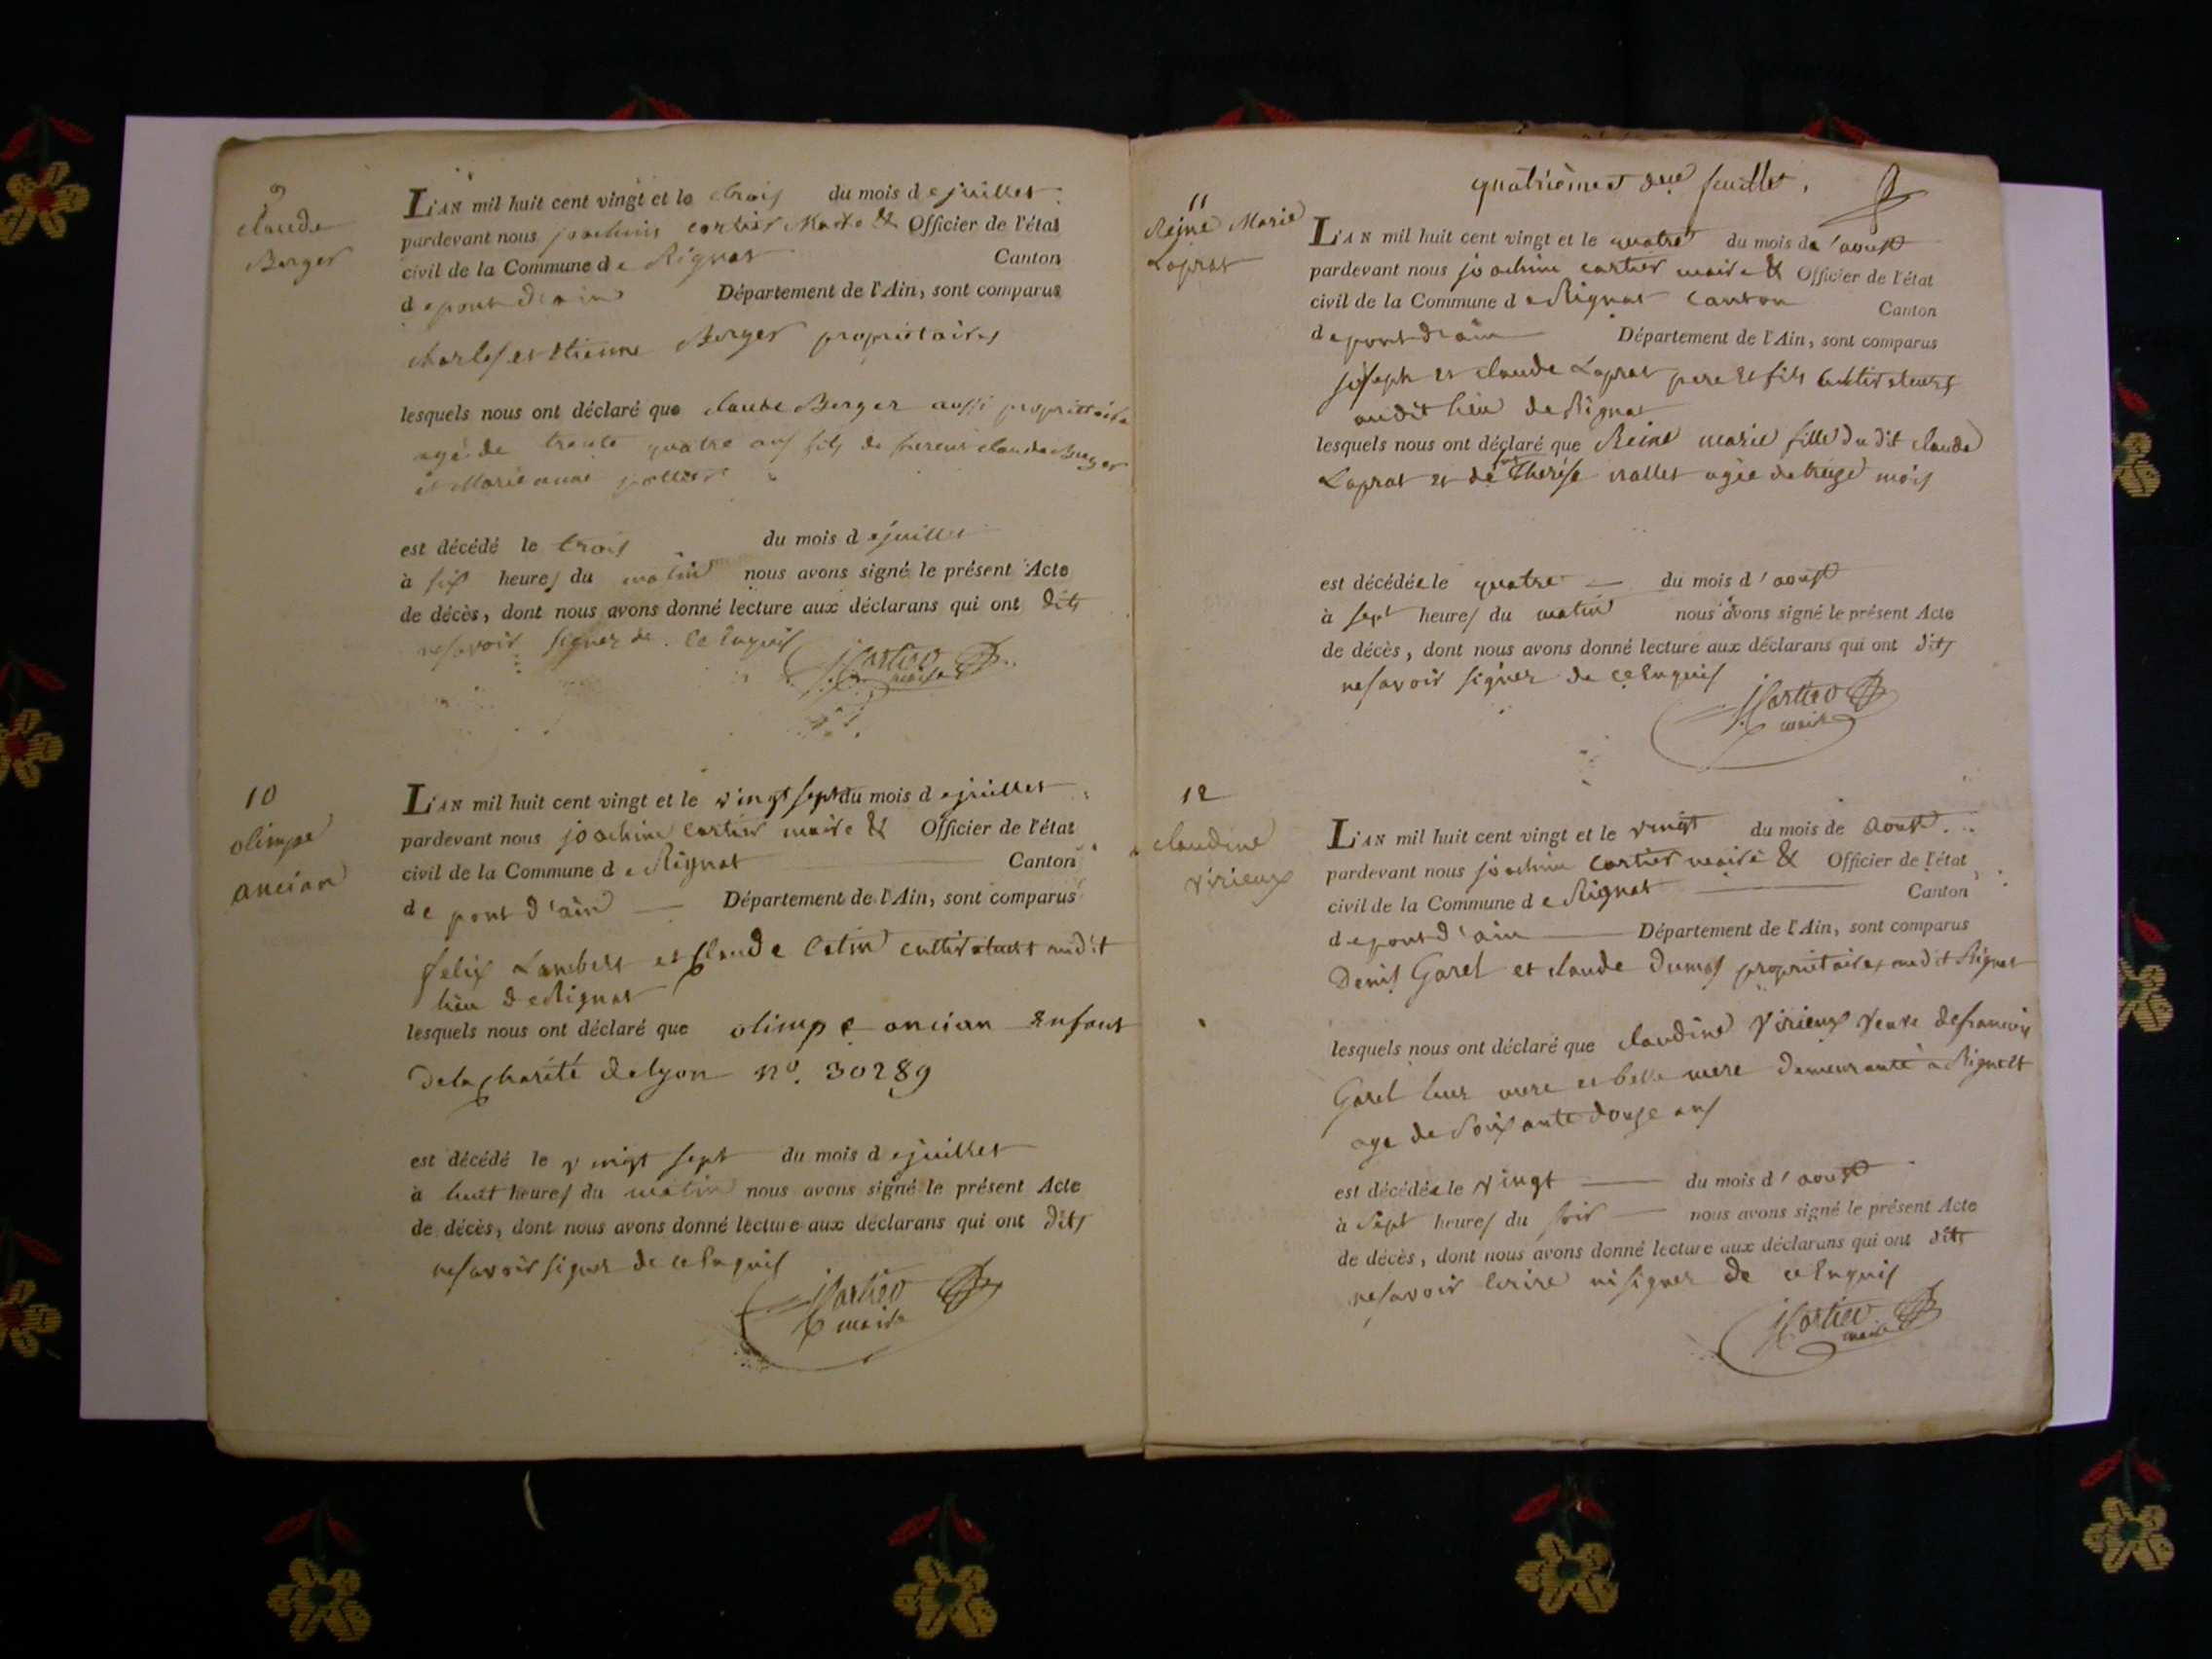 9
claude
Berger
L'AN mil huit cent vingt et le trois du mois de juillet
pardevant nous joachim cartier Maire & Officier de l'état
civil de la Commune de Rignat Canton
de pont d'ain Département de l'Ain, sont comparus
charles et etienne Berger propriétaires
lesquels nous ont déclaré que claude Berger aussi propriétaire
agé de trente quatre ans fils de claude Berger
et Marie anne
est décédé le trois du mois de juillet
à six heures du matin nous avons signé le présent Acte
de décès, dont nous avons donné lecture aux déclarans qui ont dits
ne savoir signer de ce Enquis
jCartier
maire
10
olimpe
ancian
L'AN mil huit cent vingt et le vingt sept du mois de juillet
pardevant nous joachim cartier maire & Officier de l'état
civil de la Commune de Rignat Canton
de pont d'ain Département de l'Ain, sont comparus
felix Lambert et claude cultivateurs audit
lieu de Rignat
lesquels nous ont déclaré que olimpe ancian Enfant
de la charité de lyon n°. 30289
est décédé le vingt sept du mois de juillet
à huit heures du matin nous avons signé le présent Acte
de décès, dont nous avons donné lecture aux déclarans qui ont dits
ne savoir signer de ce Enquis
jCartier
maire
quatrième et feuillet.
11
Reine Marie
Laprat
L'AN mil huit cent vingt et le quatre du mois de 'aoust
pardevant nous joachim cartier maire & Officier de l'état
civil de la Commune de Rignat canton Canton
de pont d'ain Département de l'Ain, sont comparus
joseph et claude Laprat pere et fils cultivateurs
audit lieu de Rignat
lesquels nous ont déclaré que Reine marie fille du dit claude
Laprat et de Therése vallet agée de treize mois
est décédée le quatre du mois d'aoust
à sept heures du matin nous avons signé le présent Acte
de décès, dont nous avons donné lecture aux déclarans qui ont dits
ne savoir signer de ce Enquis
jCartier
maire
12
claudine
virieux
L'AN mil huit cent vingt et le vingt du mois de aoust
pardevant nous joachim cartier maire & Officier de l'état
civil de la Commune de Rignat Canton
de pont d'ain Département de l'Ain, sont comparus
Denis Garel et claude Dumas propriétaires audit Rignat
lesquels nous ont déclaré que claudine Virieux veuve de francois
Garel leur mere et belle mere demeurante à Rignat
age de soixante douze ans
est décédée le vingt du mois d'aoust
à sept heures du soir nous avons signé le présent Acte
de décès, dont nous avons donné lecture aux déclarans qui ont dits
ne savoir Ecrire ni signer de ce Enquis
jCartier
maire